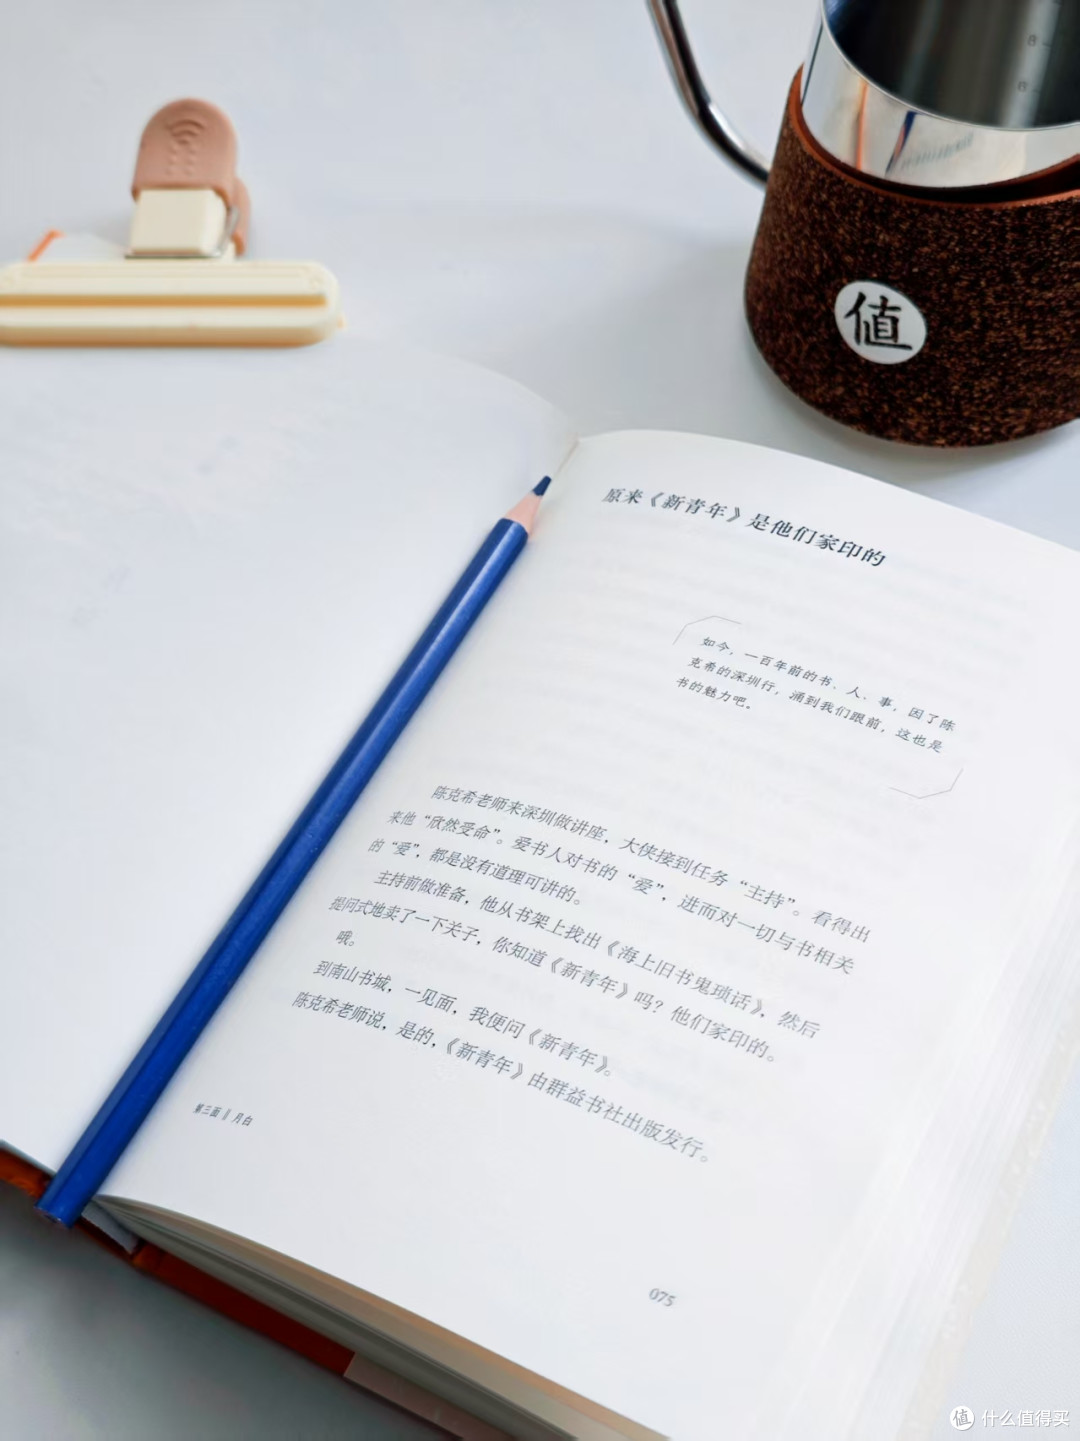 值
原来《新青年》是他们家印的
如今，一百年前的书、人、事，因了陈
克希的深圳行，涌到我们跟前，这也是
书的魅力吧。
陈克希老师来深圳做讲座，大侠接到任务“主持”。看得出
来他“欣然受命”。爱书人对书的“爱”，进而对一切与书相关
的“爱”，都是没有道理可讲的。
主持前做准备，他从书架上找出《海上旧书鬼琐话》，然后
提问式地卖了一下关子，你知道《新青年》吗？他们家印的。
哦。
到南山书城，一见面，我便问《新青年》。
陈克希老师说，是的，《新青年》由群益书社出版发行。
第三面 || 月白
075
值 什么值得买